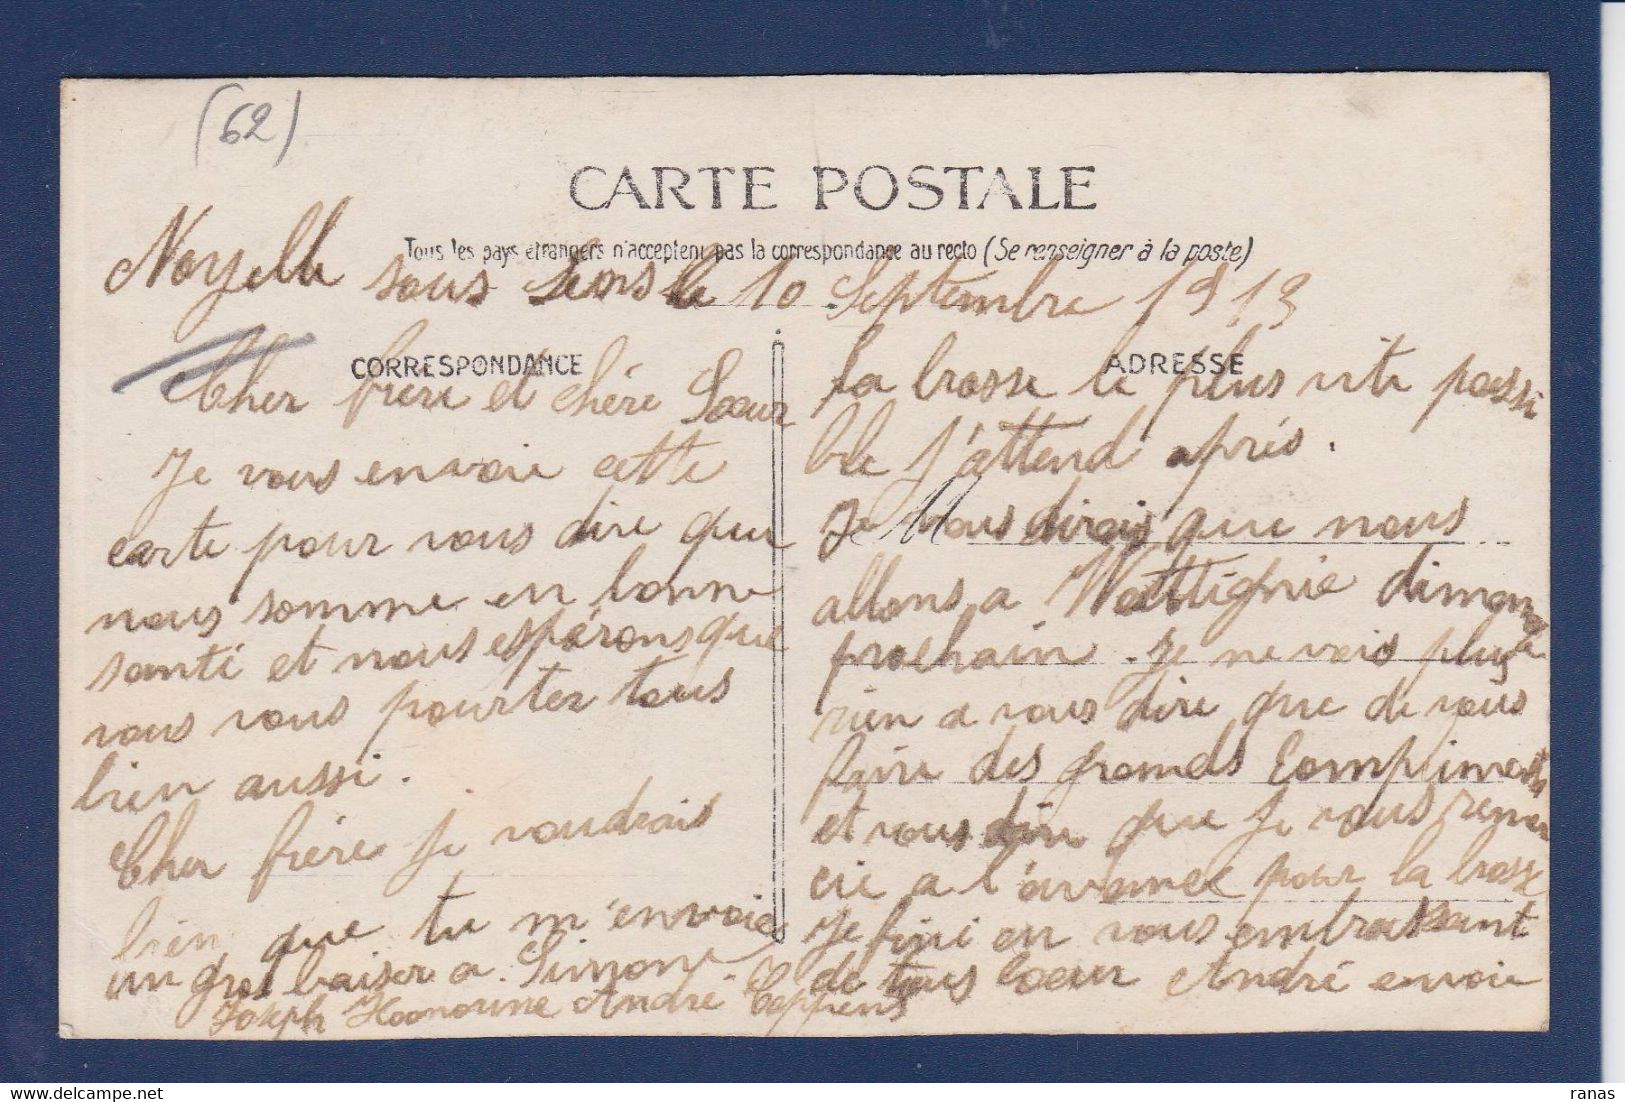 (62)
CARTE POSTALE
Tous les pays étrangers n'acceptent pas la correspondance au recto (Se renseigner à la poste)
Noyelle sous Lens le 10 Septembre 1913
CORRESPONDANCE
Cher frère et chére Sœur
Je vous envoie cette
carte pour vous dire que
nous somme en bonne
santé et nous espérons que
vous vous pourter tous
bien aussi.
Cher frère je voudrais
bien que tu m'envoies
ADRESSE
la brosse le plus vite possi
ble j'attend aprés.
Je vous dirais que nous
allons a Wattignie dimanche
prochain. Je ne vois plus
rien a vous dire que de vous
faire des grands Compliments
et vous dire que je vous remer
cie a l'avance pour la brosse
Je fini en vous embrassant
de tous cœur André envoie
un gros baiser a Simone.
Joseph Honorine André Ceppens
ranas